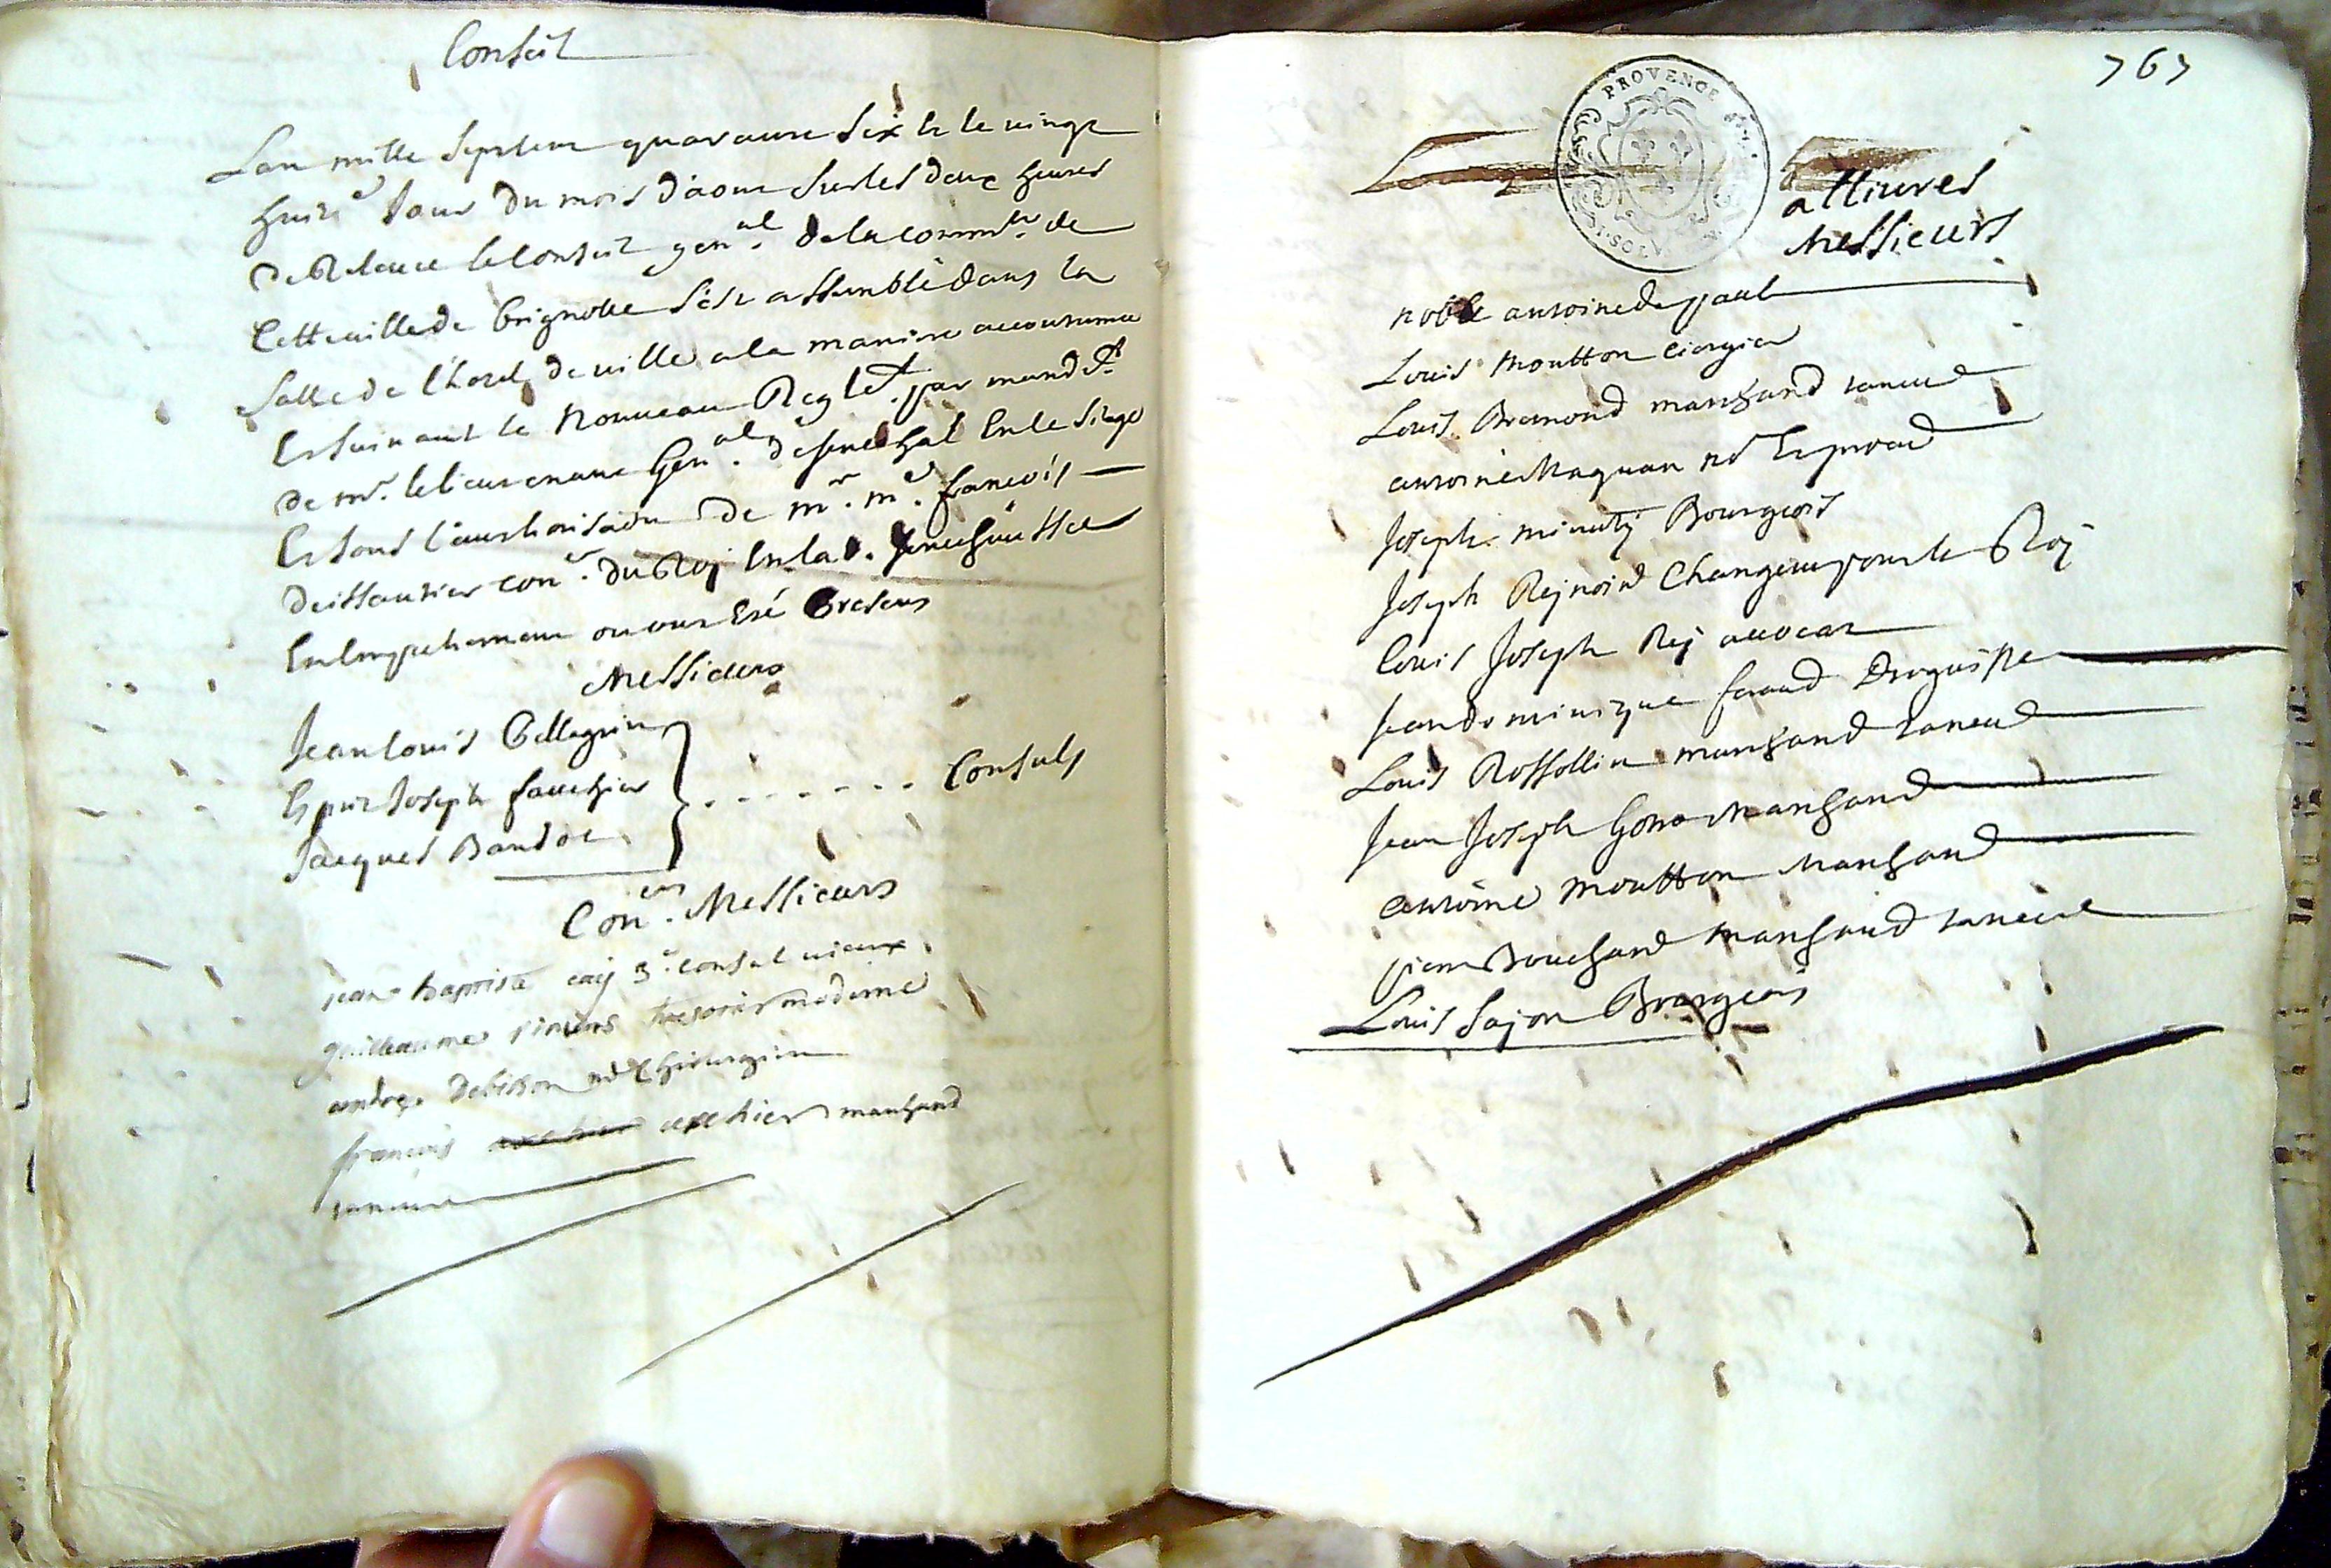 Conseil
Lan mille septcent quarante six & le vingt
huit.e Jour du mois d'aout sur les deux heures
de Relevee le Conseil gen.al de la comm.té de
Cette ville de brignolle s'est assemblé dans la
salle de l'hotel de ville a la maniere accoutumee
Et suivant le Nouveau Regle.t par mand.t
de mr. le lieutenant Gen.al de senechal En le siege
Et sous l'authorisation de mr. me. francois
deissautier con.er du Roy En la d. senechaussee
En Empechement ou ont Esté Presens
Messieurs
Jean louis Pellegrin
Esprit Joseph fauchier
Jacques Baudoc
Consuls
Con.ers Messieurs
jean baptiste 3.e consul vieux
guilleaume simens tresorier moderne
andre debisson me Chirurgien
francois auchier marchand
taneur
767
PROVENCE
2 SOLS
allivrés
Messieurs
noble antoine de paul
Louis Moutton Ciergier
Louis Bremond marchand taneur
antoine Maquan
Joseph minuty Bourgeois
Joseph Rejnoird Changeur pour le Roj
louis Joseph Rej avocat
Jean dominique feraud Droguiste
Louis Rossollin marchand taneur
Jean Joseph Marchand
antoine Moutton Marchand
pierre Bouchard Marchand taneur
Louis Sajon Bourgeois